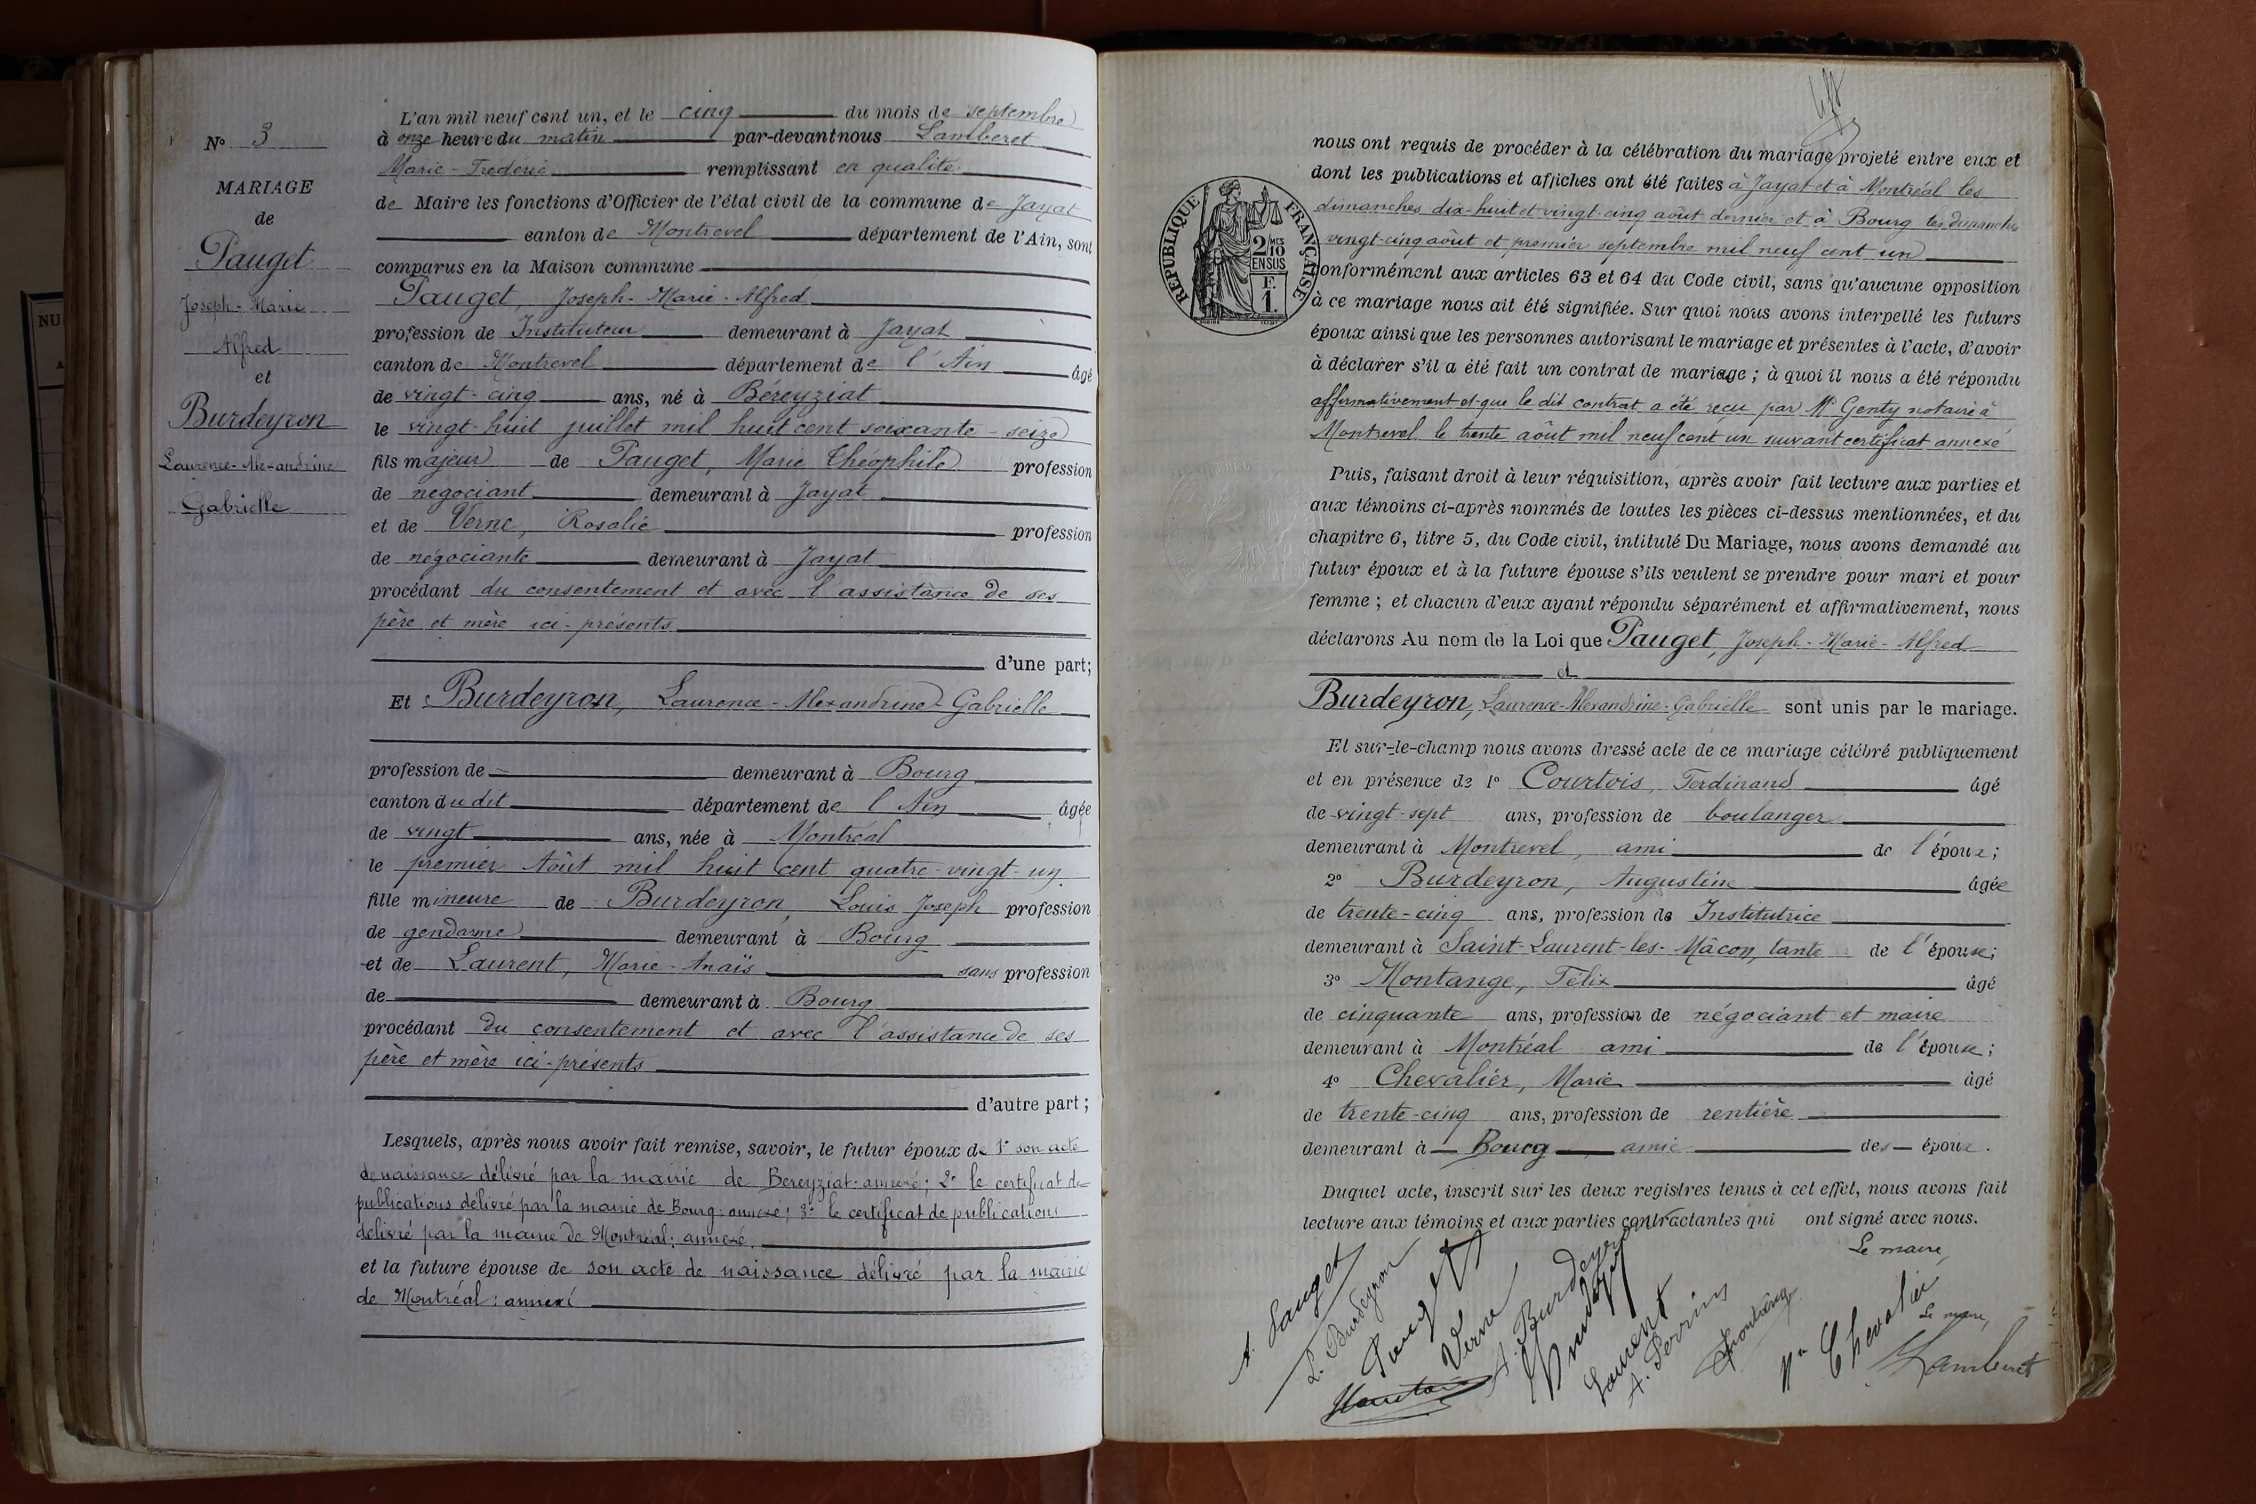 N° 3
MARIAGE
de
Pauget
Joseph-Marie
Alfred
et
Burdeyron
Laurence-Alexandrine
Gabrielle
L'an mil neuf cent un, et le cinq du mois de septembre
à onze heure du matin par-devant nous Lamberet
Marie-Frédéric remplissant en qualité
de Maire les fonctions d'Officier de l'état civil de la commune de Jayat
canton de Montrevel département de l'Ain, sont
comparus en la Maison commune
Pauget, Joseph-Marie-Alfred
profession de Instituteur demeurant à Jayat
canton de Montrevel département de l'Ain âgé
de vingt-cinq ans, né à Béreyziat
le vingt-huit juillet mil huit cent soixante-seize
fils majeur de Pauget, Marie Théophile profession
de négociant demeurant à Jayat
et de Verne, Rosalie profession
de négociante demeurant à Jayat
procédant du consentement et avec l'assistance de ses
père et mère ici-présents
d'une part;
Et Burdeyron, Laurence-Alexandrine-Gabrielle
profession de demeurant à Bourg
canton du dit département de l'Ain âgée
de vingt ans, née à Montréal
le premier Août mil huit cent quatre-vingt-un
fille mineure de Burdeyron, Louis Joseph profession
de gendarme demeurant à Bourg
et de Laurent, Marie-Anaïs sans profession
de demeurant à Bourg
procédant du consentement et avec l'assistance de ses
père et mère ici-présents
d'autre part;
Lesquels, après nous avoir fait remise, savoir, le futur époux de 1° son acte
de naissance délivré par la mairie de Bereyziat: annexé; 2° le certificat de
publications délivré par la mairie de Bourg: annexé; 3° le certificat de publications
délivré par la mairie de Montréal: annexé.
et la future épouse de son acte de naissance délivré par la mairie
de Montréal: annexé
nous ont requis de procéder à la célébration du mariage projeté entre eux et
dont les publications et affiches ont été faites à Jayat et à Montréal les
dimanches dix-huit et vingt-cinq août dernier et à Bourg les dimanches
vingt-cinq août et premier septembre mil neuf cent un
RÉPUBLIQUE FRANÇAISE
2 MES
10
EN SUS
F.
1.
conformément aux articles 63 et 64 du Code civil, sans qu'aucune opposition
à ce mariage nous ait été signifiée. Sur quoi nous avons interpellé les futurs
époux ainsi que les personnes autorisant le mariage et présentes à l'acte, d'avoir
à déclarer s'il a été fait un contrat de mariage; à quoi il nous a été répondu
affirmativement et que le dit contrat a été reçu par Me Genty notaire à
Montrevel le trente août mil neuf cent un suivant certificat annexé
Puis, faisant droit à leur réquisition, après avoir fait lecture aux parties et
aux témoins ci-après nommés de toutes les pièces ci-dessus mentionnées, et du
chapitre 6, titre 5, du Code civil, intitulé Du Mariage, nous avons demandé au
futur époux et à la future épouse s'ils veulent se prendre pour mari et pour
femme; et chacun d'eux ayant répondu séparément et affirmativement, nous
déclarons Au nom de la Loi que Pauget, Joseph-Marie-Alfred
et
Burdeyron, Laurence-Alexandrine-Gabrielle sont unis par le mariage.
Et sur-le-champ nous avons dressé acte de ce mariage célébré publiquement
et en présence de 1° Courtois, Ferdinand âgé
de vingt-sept ans, profession de boulanger
demeurant à Montrevel, ami de l'époux;
2° Burdeyron, Augustine âgée
de trente-cinq ans, profession de Institutrice
demeurant à Saint-Laurent-les-Mâcon, tante de l'épouse;
3° Montange, Félix âgé
de cinquante ans, profession de négociant et maire
demeurant à Montréal ami de l'épouse;
4° Chevalier, Marie âgé
de trente-cinq ans, profession de rentière
demeurant à Bourg amie des époux.
Duquel acte, inscrit sur les deux registres tenus à cet effet, nous avons fait
lecture aux témoins et aux parties contractantes qui ont signé avec nous.
Le maire,
A. Pauget
L. Burdeyron
Pauget
Verne
A. Burdeyron
Laurent
A. Perrin
Montange
Mie Chevalier
Le maire,
Lamberet